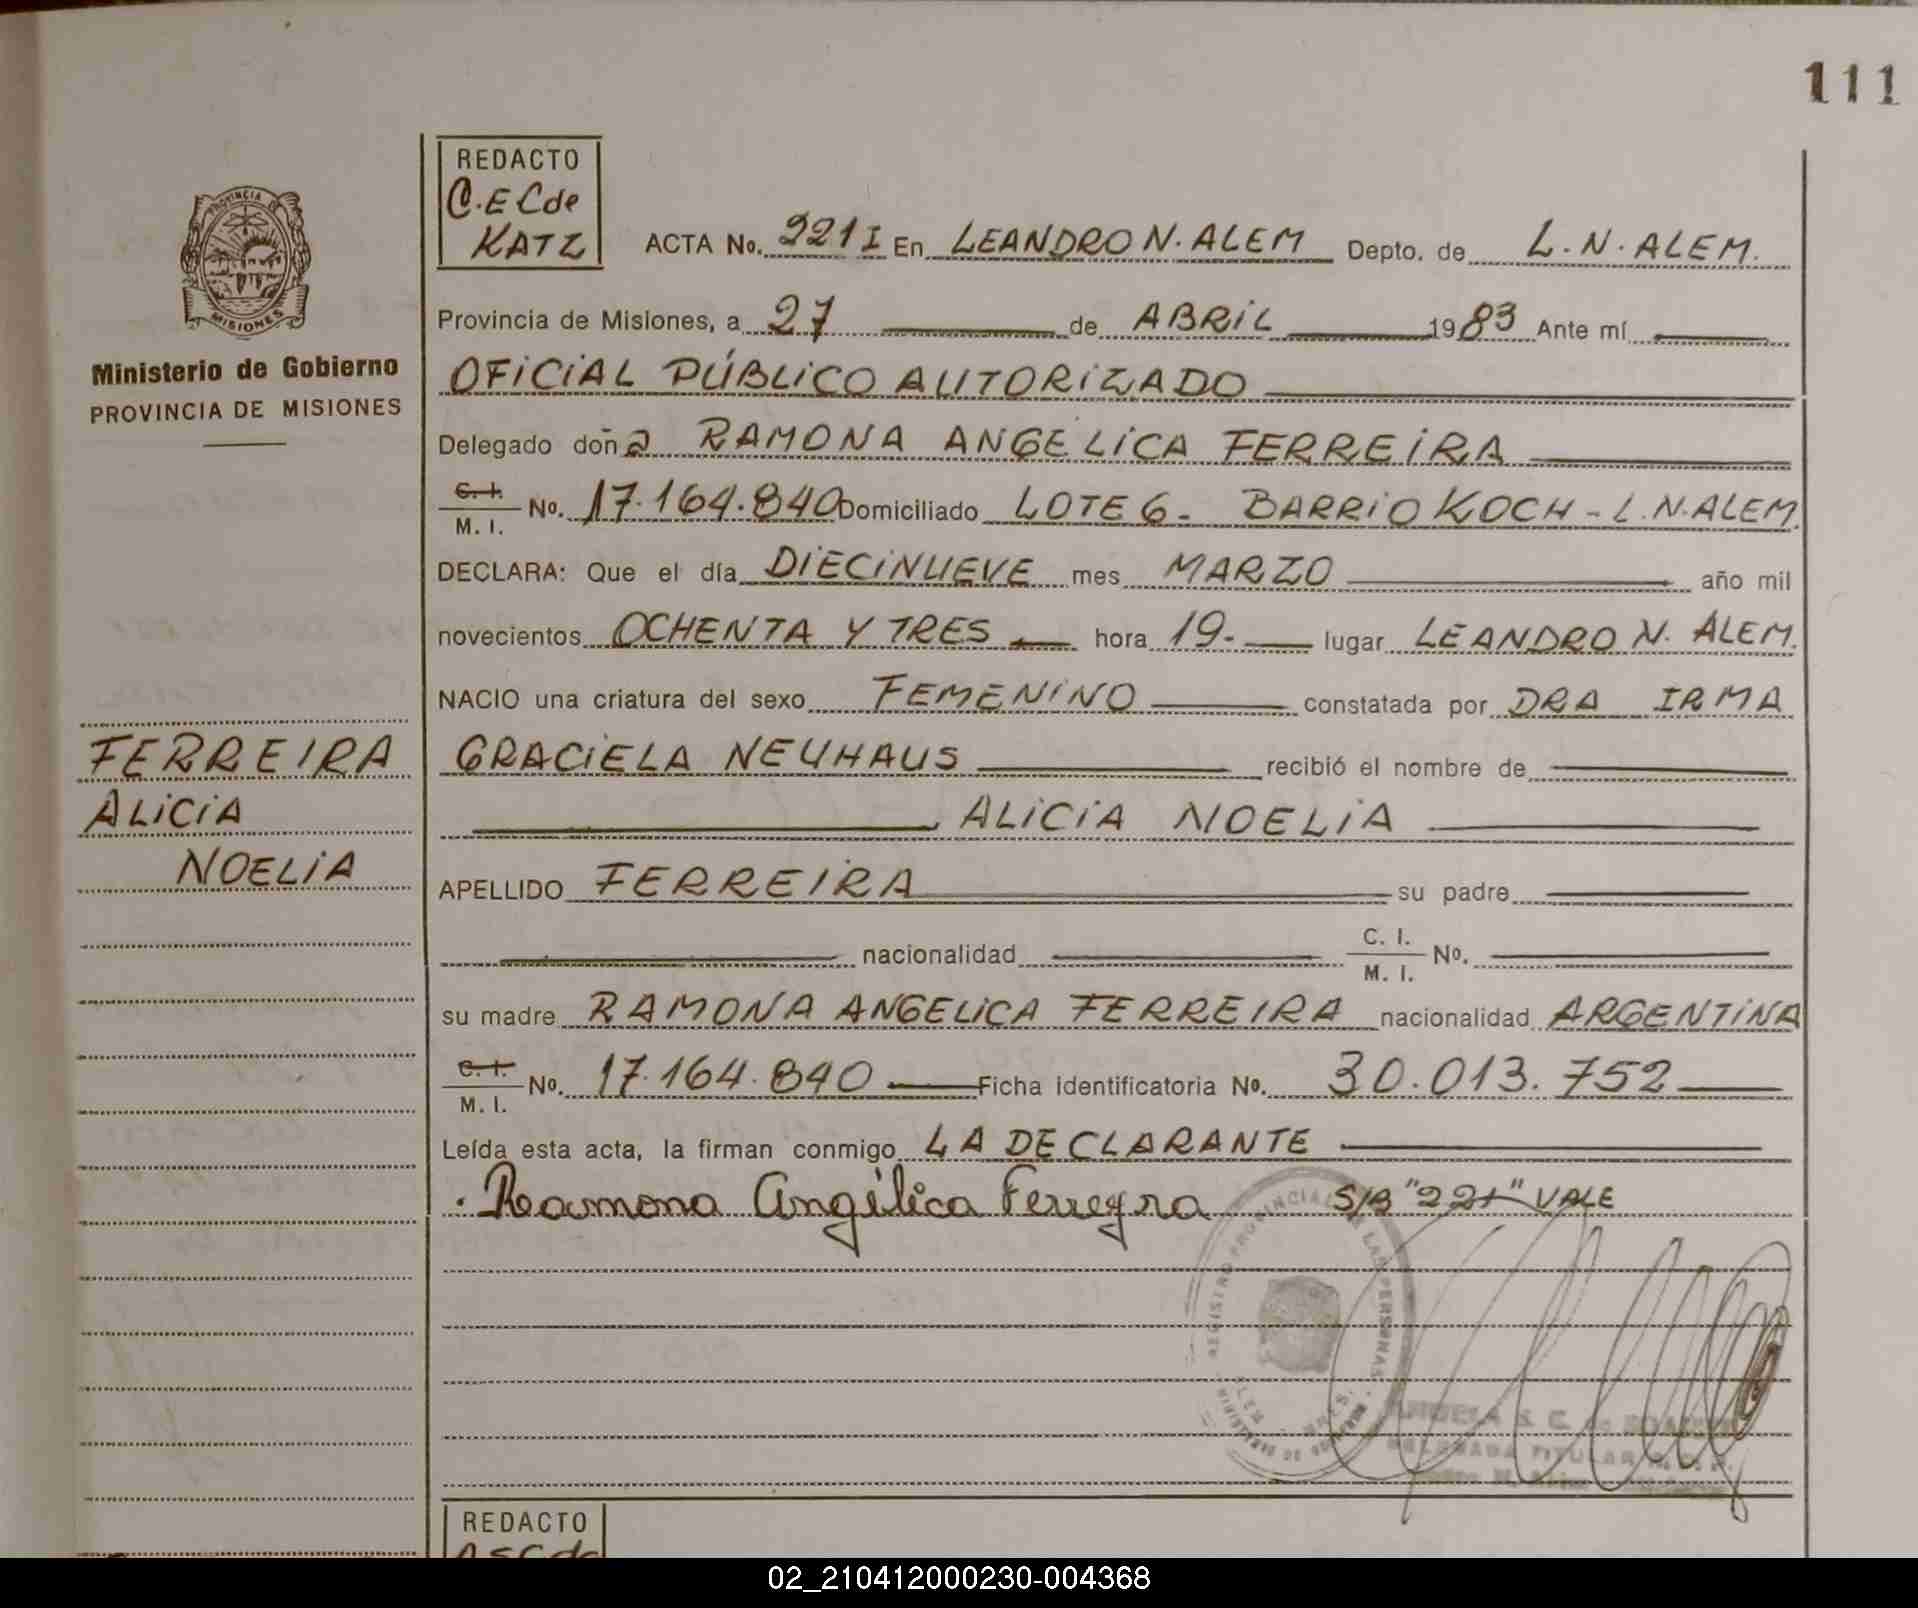 111
REDACTO
C.E C de
KATZ
PROVINCIA DE
MISIONES
Ministerio de Gobierno
PROVINCIA DE MISIONES
FERREIRA
ALICIA
NOELIA
ACTA No. 221 I En LEANDRO N. ALEM Depto. de L. N. ALEM.
Provincia de Misiones, a 27 de ABRIL 1983 Ante mí
OFICIAL PÚBLICO AUTORIZADO
Delegado doña RAMONA ANGELICA FERREIRA
C. I. / M. I. No. 17.164.840 Domiciliado LOTE 6 - BARRIO KOCH - L.N. ALEM.
DECLARA: Que el día DIECINUEVE mes MARZO año mil
novecientos OCHENTA Y TRES hora 19.- lugar LEANDRO N. ALEM.
NACIO una criatura del sexo FEMENINO constatada por DRA IRMA
GRACIELA NEUHAUS recibió el nombre de
ALICIA NOELIA
APELLIDO FERREIRA su padre
nacionalidad C. I. / M. I. No.
su madre RAMONA ANGELICA FERREIRA nacionalidad ARGENTINA
C. I. / M. I. No. 17.164.840 Ficha identificatoria No. 30.013.752
Leída esta acta, la firman conmigo LA DECLARANTE
Ramona Angélica Ferreyra S/B "221" VALE
REGISTRO PROVINCIAL DE LAS PERSONAS
DELEGADA TITULAR
REDACTO
02_210412000230-004368